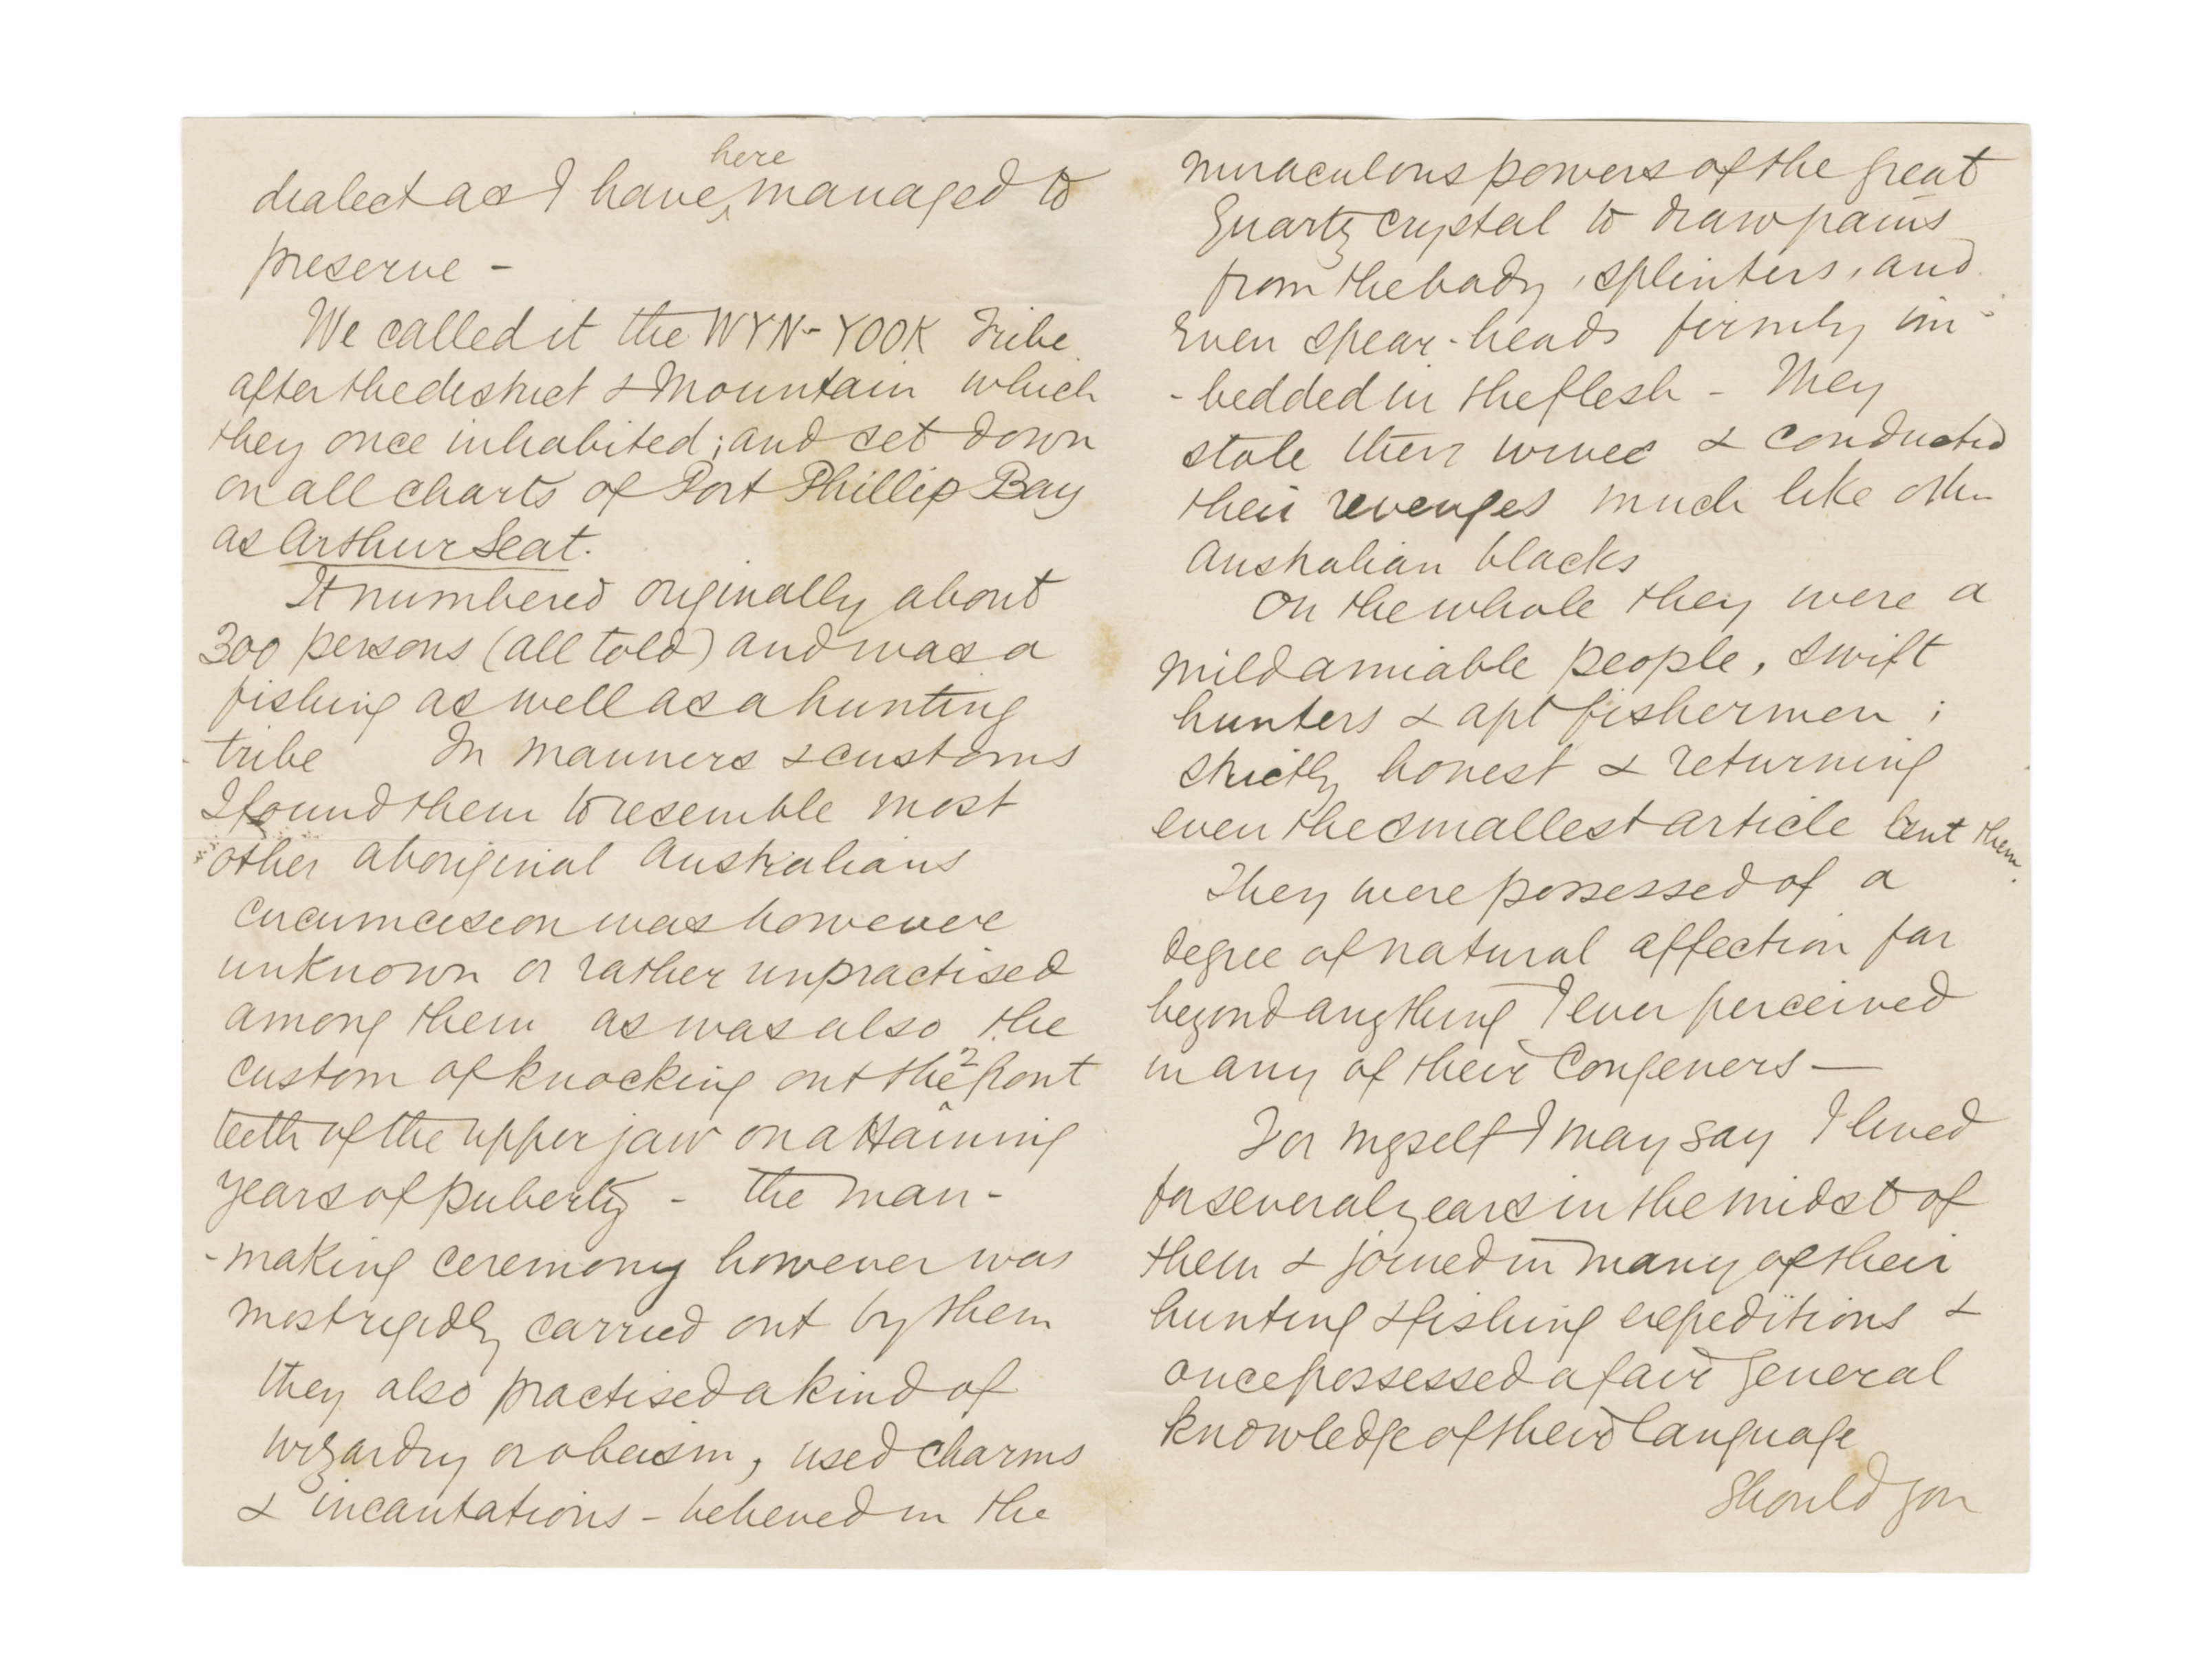 dialect as I have here managed to
preserve -
We called it the WYN-YOOK Tribe
after the district & Mountain which
they once inhabited; and set down
on all charts of Port Phillip Bay
as Arthur Seat.
It numbered originally about
300 persons (all told) and was a
fishing as well as a hunting
tribe In manners & customs
I found them to resemble most
other aboriginal Australians
Circumcision was however
unknown or rather unpractised
among them as was also the
custom of knocking out the 2 front
teeth of the upper jaw on attaining
years of puberty - the man-
-making ceremony however was
most rigidly carried out by them
they also practised a kind of
wizardry or obeism, used charms
& incantations - believed in the
miraculous powers of the great
Quartz crystal to draw pains
from the body, splinters, and
even spear-heads firmly im-
-bedded in the flesh - They
stole their wives & conducted
their revenges much like other
Australian blacks
On the whole they were a
mild amiable people, swift
hunters & apt fishermen;
strictly honest & returning
even the smallest article lent them.
They were possessed of a
degree of natural affection far
beyond anything I ever perceived
in any of their Congeners —
For myself I may say I lived
for several years in the midst of
them & joined in many of their
hunting & fishing expeditions &
once possessed a fair general
knowledge of their language
Should you